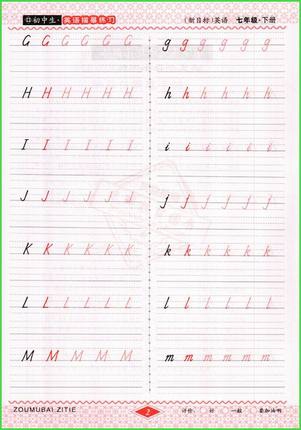 初中生·英语描摹练习 (新目标)英语 七年级·下册
G G G G G G g g g g g g
H H H H H H h h h h h h
I I I I I I i i i i i i
J J J J J J j j j j j j
K K K K K K k k k k k k
L L L L L L l l l l l l
M M M M M M m m m m m m
ZOUMUBAI ZITIE 2 评价: 好 一般 要加油啊